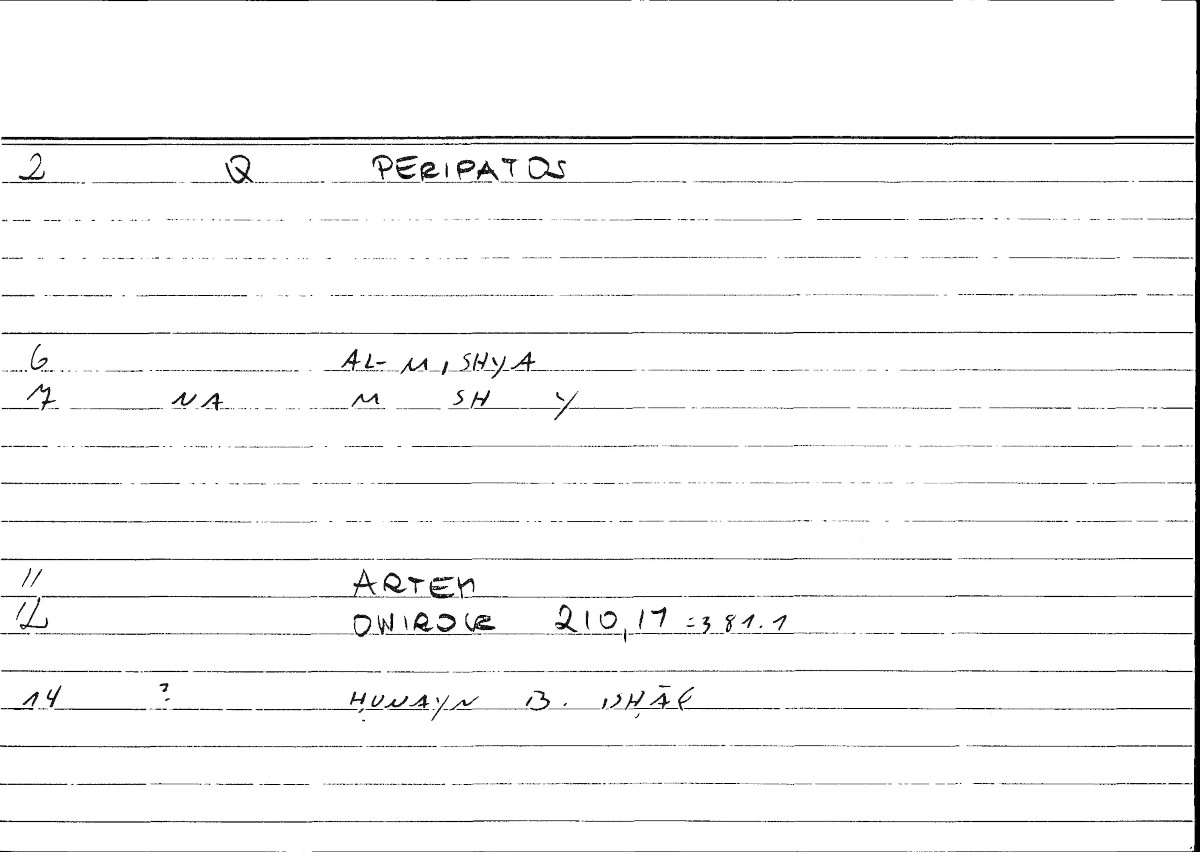 2 Q PERIPATOS
6 AL- M , SHYA
7 NA M SH Y
11 ARTEM
12 ONIROCR 210,17 =381.1
14 ? ḤUNAYN B. ISḤĀQ